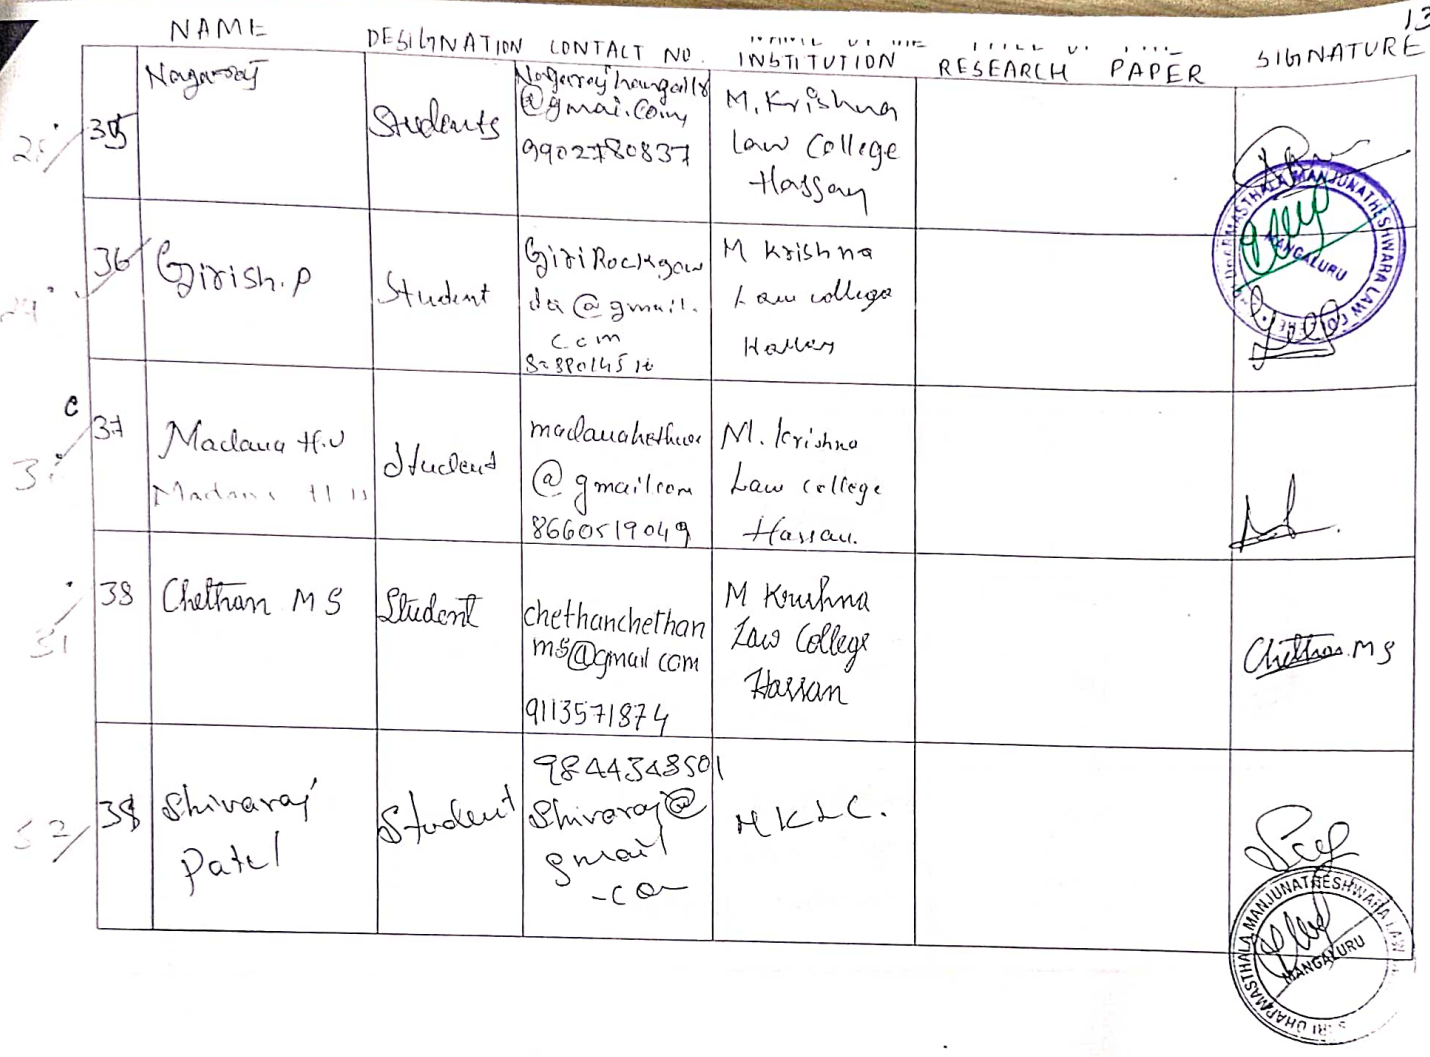 13
NAME
DESIGNATION
CONTACT NO.
INSTITUTION
RESEARCH PAPER
SIGNATURE
35
Nagaraj
Students
@gmai.com
9902780837
M. Krishna
Law College
Hassan
36
Girish.P
Student
GiriRockgow
da@gmail.
com
M Krishna
Law college
Hassan
37
Madana H.U
Student
@gmail.com
8660519049
M. Krishna
Law college
Hassan.
38
Chethan M S
Student
chethanchethan
ms@gmail com
9113571874
M Krushna
Law College
Hassan
Chethan. M S
31
38
Shivaraj
Patel
Student
9844348501
Shivaraj@
gmail
-com
MKLC.
32
DHARMASTHALA MANJUNATHESHWARA LAW COLLEGE
MANGALURU
SRI DHARMASTHALA MANJUNATHESHWARA LAW
MANGALURU